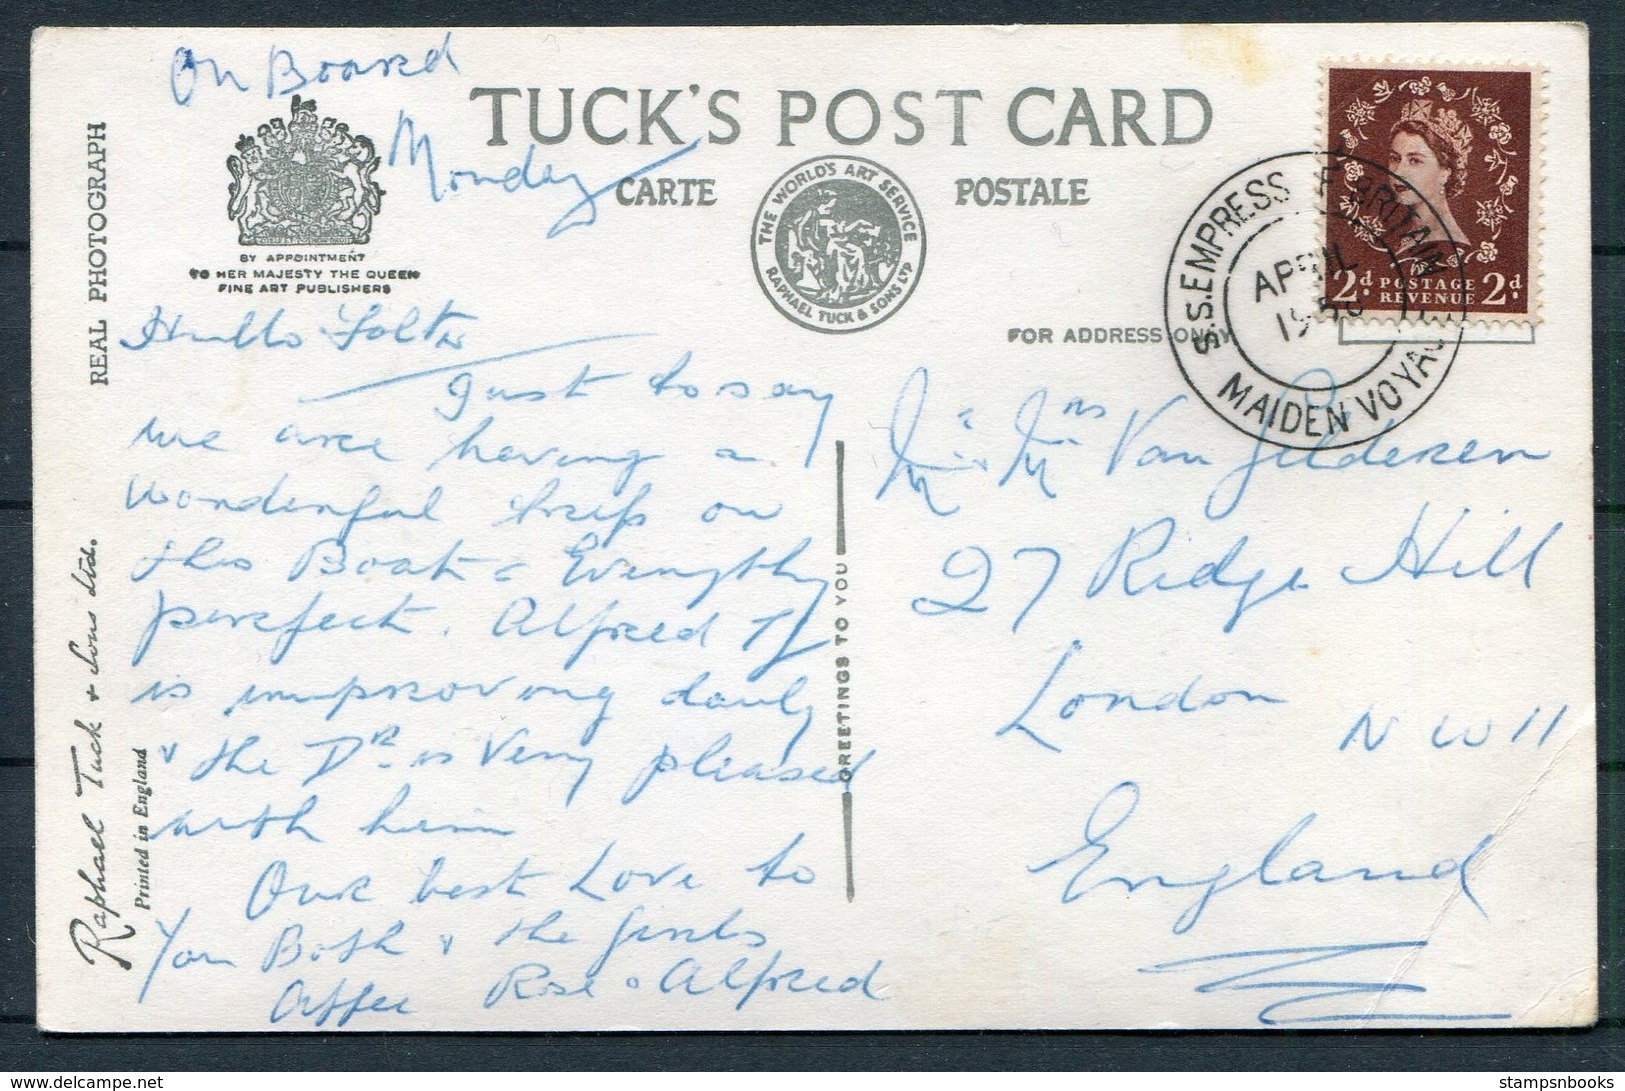 On Board
Monday
TUCK'S POST CARD
CARTE POSTALE
THE WORLD'S ART SERVICE
RAPHAEL TUCK & SONS LTD
BY APPOINTMENT
TO HER MAJESTY THE QUEEN
FINE ART PUBLISHERS
REAL PHOTOGRAPH
FOR ADDRESS ONLY
S.S. EMPRESS F BRITAIN
APRIL
MAIDEN VOYAGE
2d. POSTAGE 2d.
REVENUE
Hullo Folks
Just to say
we are having a
wonderful trip on
this Boat & Everything
perfect. Alfred
is improving daily
& the Dr. is Very pleased
with him
Our best Love to
You Both & the Girls
Affec Rose & Alfred
GREETINGS TO YOU
Mr & Mrs Van Gelderen
27 Ridge Hill
London
N W 11
England
Raphael Tuck & Sons Ltd.
Printed in England
stampsnbooks